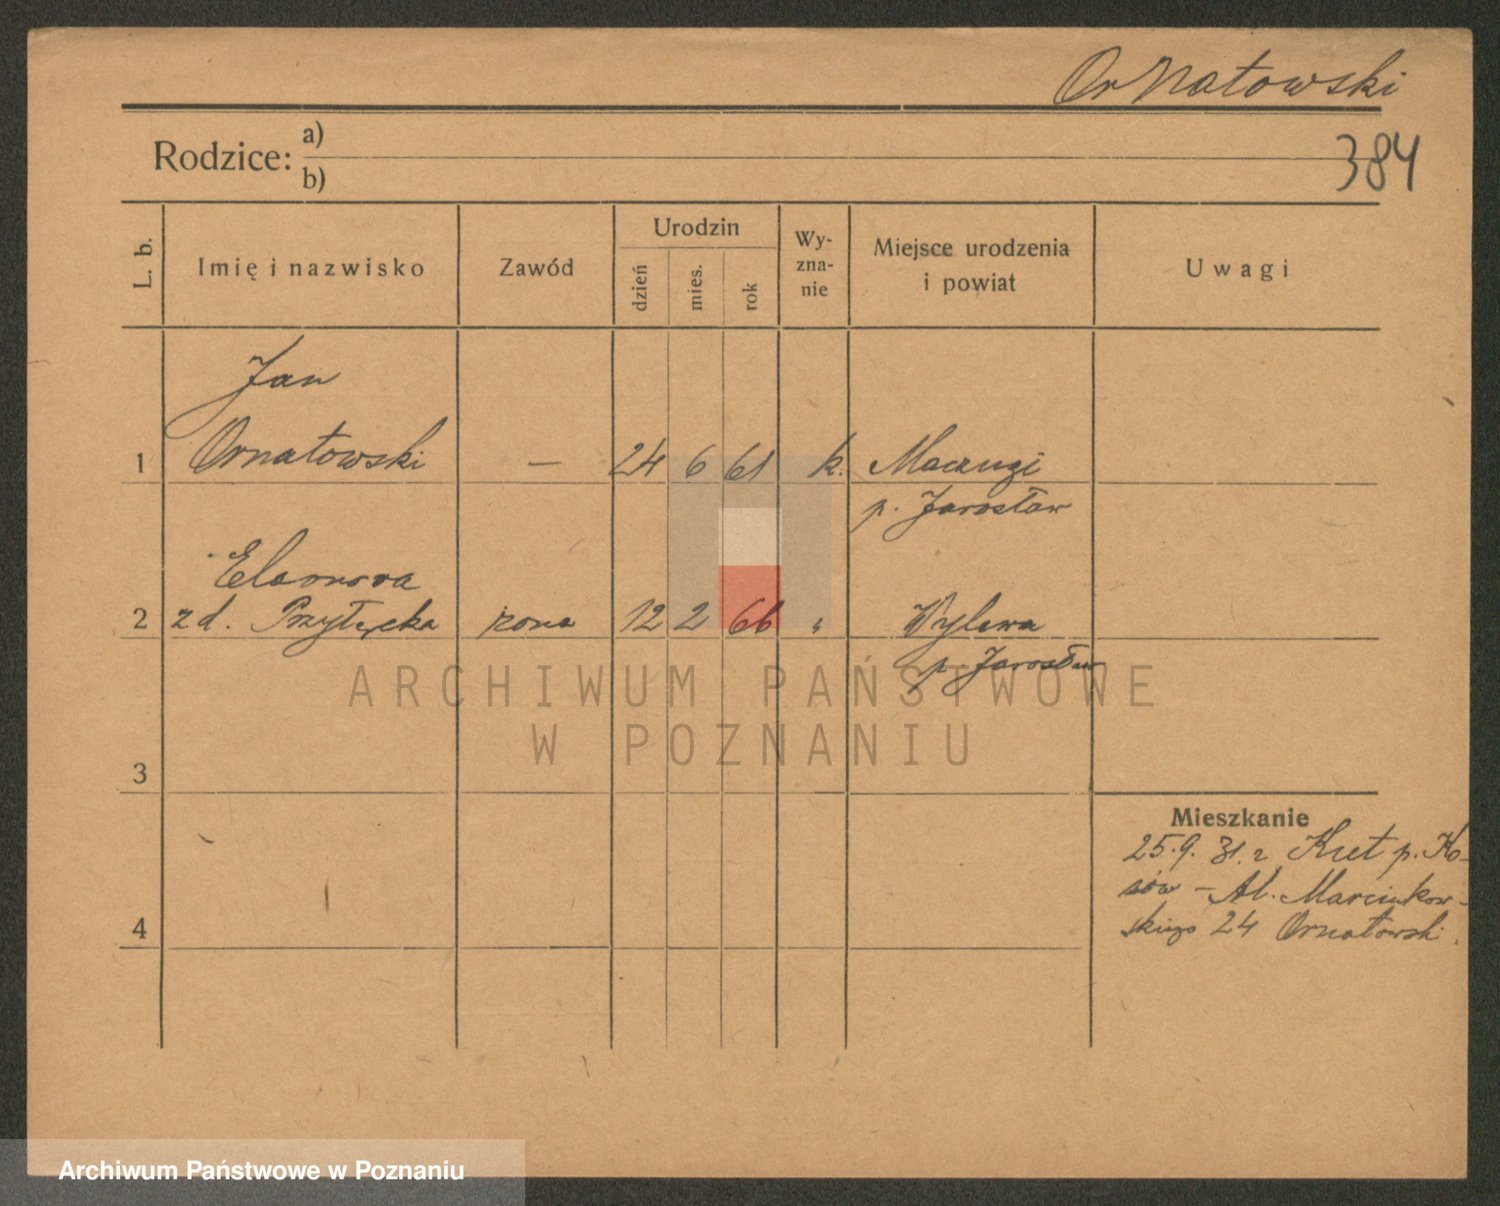 Ornatowski
Rodzice: a)
b)
384
L. b.
Imię i nazwisko
Zawód
Urodzin
dzień
mies.
rok
Wy-
zna-
nie
Miejsce urodzenia
i powiat
Uwagi
Jan
1 Ornatowski — 24 6 61 k.
p. Jarosław
Eleonora
2 z d. Przyłęcka żona 12 2 66 "
p. Jarosław
ARCHIWUM PAŃSTWOWE
W POZNANIU
3
Mieszkanie
25.9.31. z p. Ko-
sów – Al. Marcinkow-
skiego 24 Ornatowski.
4
Archiwum Państwowe w Poznaniu